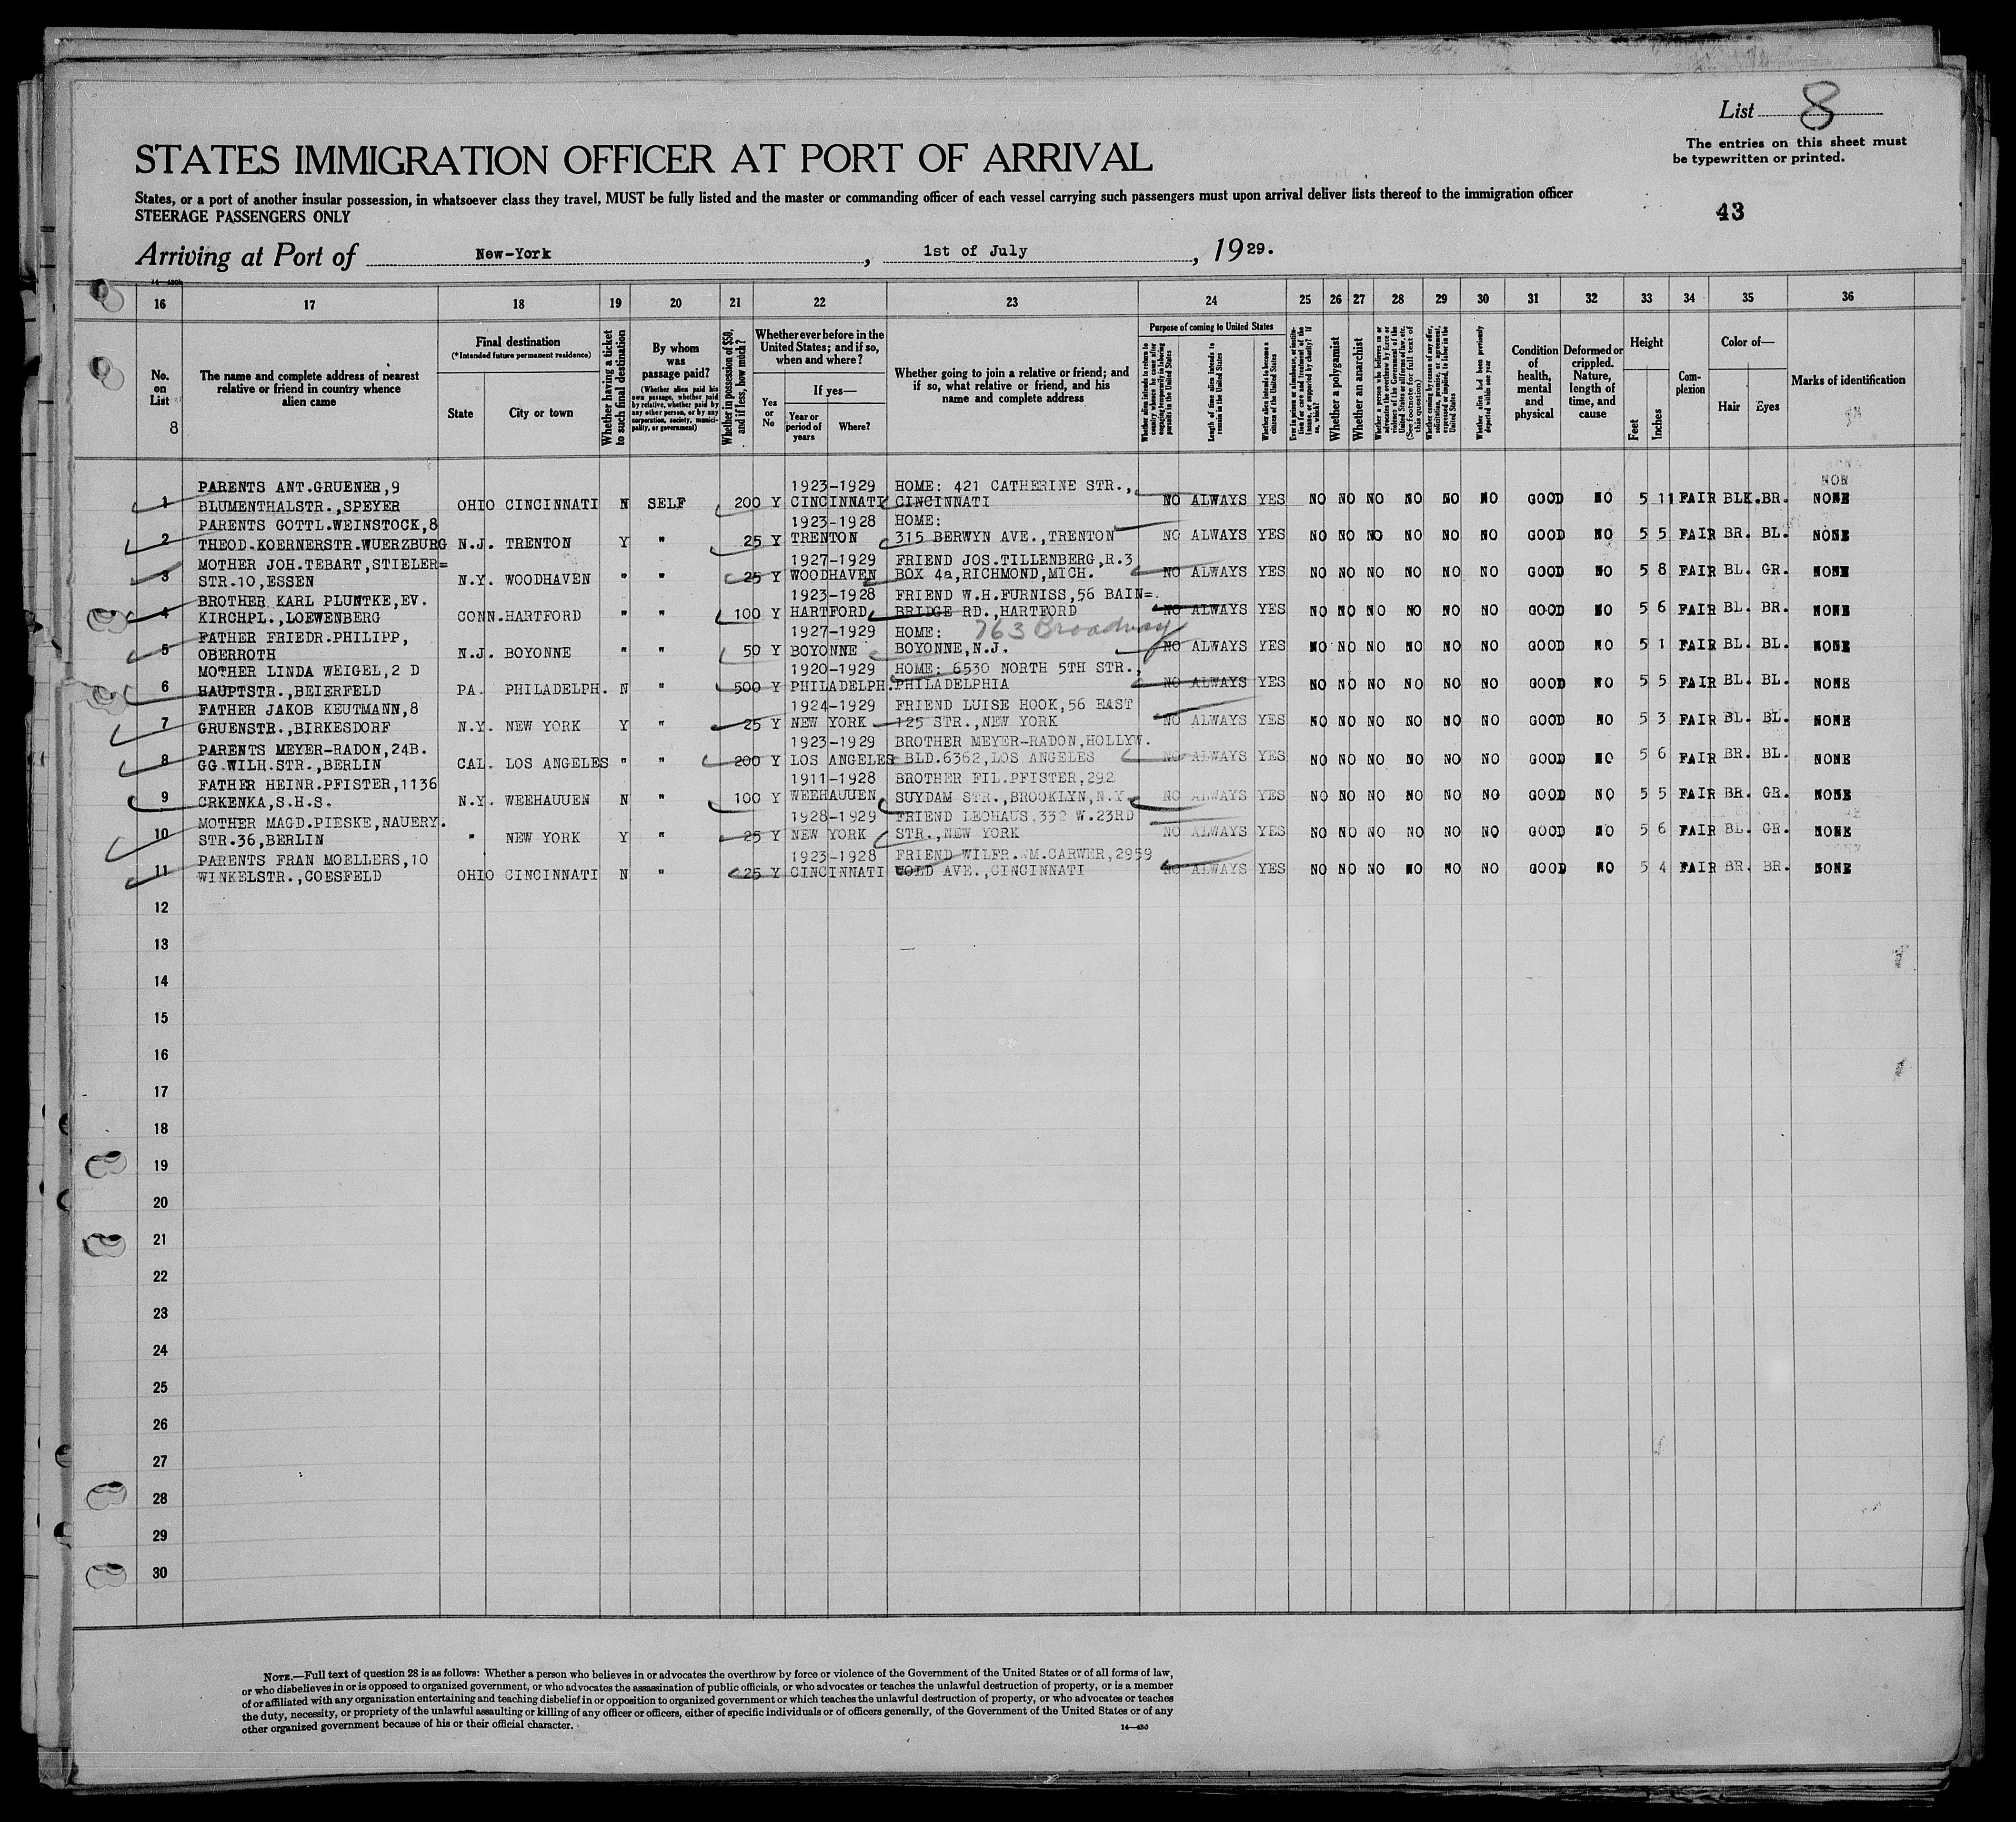 List 8
The entries on this sheet must
be typewritten or printed.
STATES IMMIGRATION OFFICER AT PORT OF ARRIVAL
States, or a port of another insular possession, in whatsoever class they travel, MUST be fully listed and the master or commanding officer of each vessel carrying such passengers must upon arrival deliver lists thereof to the immigration officer
STEERAGE PASSENGERS ONLY
43
Arriving at Port of New-York, 1st of July, 1929.
16 17 18 19 20 21 22 23 24 25 26 27 28 29 30 31 32 33 34 35 36
No. on List
8
The name and complete address of nearest relative or friend in country whence alien came
Final destination
(*Intended future permanent residence)
State
City or town
Whether having a ticket to such final destination
By whom was passage paid?
(Whether alien paid his own passage, whether paid by relative, whether paid by any other person, or by any corporation, society, municipality, or government)
Whether in possession of $50, and if less, how much?
Whether ever before in the United States; and if so, when and where?
Yes or No
If yes—
Year or period of years
Where?
Whether going to join a relative or friend; and if so, what relative or friend, and his name and complete address
Purpose of coming to United States
Whether alien intends to return to country whence he came after engaging temporarily in laboring pursuits in the United States
Length of time alien intends to remain in the United States
Whether alien intends to become a citizen of the United States
Ever in prison or almshouse, or institution for care and treatment of the insane, or supported by charity? If so, which?
Whether a polygamist
Whether an anarchist
Whether a person who believes in or advocates the overthrow by force or violence of the Government of the United States or all forms of law, etc. (See footnote for full text of this question)
Whether coming by reason of any offer, solicitation, promise, or agreement, expressed or implied, to labor in the United States
Whether alien had been previously deported within one year
Condition of health, mental and physical
Deformed or crippled. Nature, length of time, and cause
Height
Feet
Inches
Complexion
Color of—
Hair
Eyes
Marks of identification
PARENTS ANT.GRUENER,9 1923-1929 HOME: 421 CATHERINE STR.,
1 BLUMENTHALSTR.,SPEYER OHIO CINCINNATI N SELF 200 Y CINCINNATI CINCINNATI NO ALWAYS YES NO NO NO NO NO NO GOOD NO 5 11 FAIR BLK.BR. NONE
PARENTS GOTTL.WEINSTOCK,8 1923-1928 HOME:
2 THEOD.KOERNERSTR.WUERZBURG N.J. TRENTON Y " 25 Y TRENTON 315 BERWYN AVE.,TRENTON NO ALWAYS YES NO NO NO NO NO NO GOOD NO 5 5 FAIR BR. BL. NONE
MOTHER JOH.TEBART,STIELER= 1927-1929 FRIEND JOS.TILLENBERG,R.3
3 STR.10,ESSEN N.Y. WOODHAVEN " " 25 Y WOODHAVEN BOX 4a,RICHMOND,MICH. NO ALWAYS YES NO NO NO NO NO NO GOOD NO 5 8 FAIR BL. GR. NONE
BROTHER KARL PLUNTKE,EV. 1923-1928 FRIEND W.H.FURNISS,56 BAIN=
4 KIRCHPL.,LOEWENBERG CONN.HARTFORD " " 100 Y HARTFORD BRIDGE RD.,HARTFORD NO ALWAYS YES NO NO NO NO NO NO GOOD NO 5 6 FAIR BL. BR. NONE
FATHER FRIEDR.PHILIPP, 1927-1929 HOME: 763 Broadway
5 OBERROTH N.J. BOYONNE " " 50 Y BOYONNE BOYONNE,N.J. NO ALWAYS YES NO NO NO NO NO NO GOOD NO 5 1 FAIR BL. BL. NONE
MOTHER LINDA WEIGEL,2 D 1920-1929 HOME: 6530 NORTH 5TH STR.,
6 HAUPTSTR.,BEIERFELD PA. PHILADELPH. N " 500 Y PHILADELPH. PHILADELPHIA NO ALWAYS YES NO NO NO NO NO NO GOOD NO 5 5 FAIR BL. BL. NONE
FATHER JAKOB KEUTMANN,8 1924-1929 FRIEND LUISE HOOK,56 EAST
7 GRUENSTR.,BIRKESDORF N.Y. NEW YORK Y " 25 Y NEW YORK 125 STR.,NEW YORK NO ALWAYS YES NO NO NO NO NO NO GOOD NO 5 3 FAIR BL. BL. NONE
PARENTS MEYER-RADON,24B. 1923-1929 BROTHER MEYER-RADON,HOLLYW.
8 GG.WILH.STR.,BERLIN CAL. LOS ANGELES " " 200 Y LOS ANGELES BLD.6362,LOS ANGELES NO ALWAYS YES NO NO NO NO NO NO GOOD NO 5 6 FAIR BR. BL. NONE
FATHER HEINR.PFISTER,1136 1911-1928 BROTHER FIL.PFISTER,292
9 CRKENKA,S.H.S. N.Y. WEEHAUUEN N " 100 Y WEEHAUUEN SUYDAM STR.,BROOKLYN,N.Y. NO ALWAYS YES NO NO NO NO NO NO GOOD NO 5 5 FAIR BR. GR. NONE
MOTHER MAGD.PIESKE,NAUERY. 1928-1929 FRIEND LEOHAUS,332 W.23RD
10 STR.36,BERLIN " NEW YORK Y " 25 Y NEW YORK STR.,NEW YORK NO ALWAYS YES NO NO NO NO NO NO GOOD NO 5 6 FAIR BL. GR. NONE
PARENTS FRAN MOELLERS,10 1923-1928 FRIEND WILFR.WM.CARWER,2959
11 WINKELSTR.,COESFELD OHIO CINCINNATI N " 25 Y CINCINNATI WOLD AVE.,CINCINNATI NO ALWAYS YES NO NO NO NO NO NO GOOD NO 5 4 FAIR BR. BR. NONE
12
13
14
15
16
17
18
19
20
21
22
23
24
25
26
27
28
29
30
NOTE.—Full text of question 28 is as follows: Whether a person who believes in or advocates the overthrow by force or violence of the Government of the United States or of all forms of law,
or who disbelieves in or is opposed to organized government, or who advocates the assassination of public officials, or who advocates or teaches the unlawful destruction of property, or is a member
of or affiliated with any organization entertaining and teaching disbelief in or opposition to organized government or which teaches the unlawful destruction of property, or who advocates or teaches
the duty, necessity, or propriety of the unlawful assaulting or killing of any officer or officers, either of specific individuals or of officers generally, of the Government of the United States or of any
other organized government because of his or their official character.
14—430